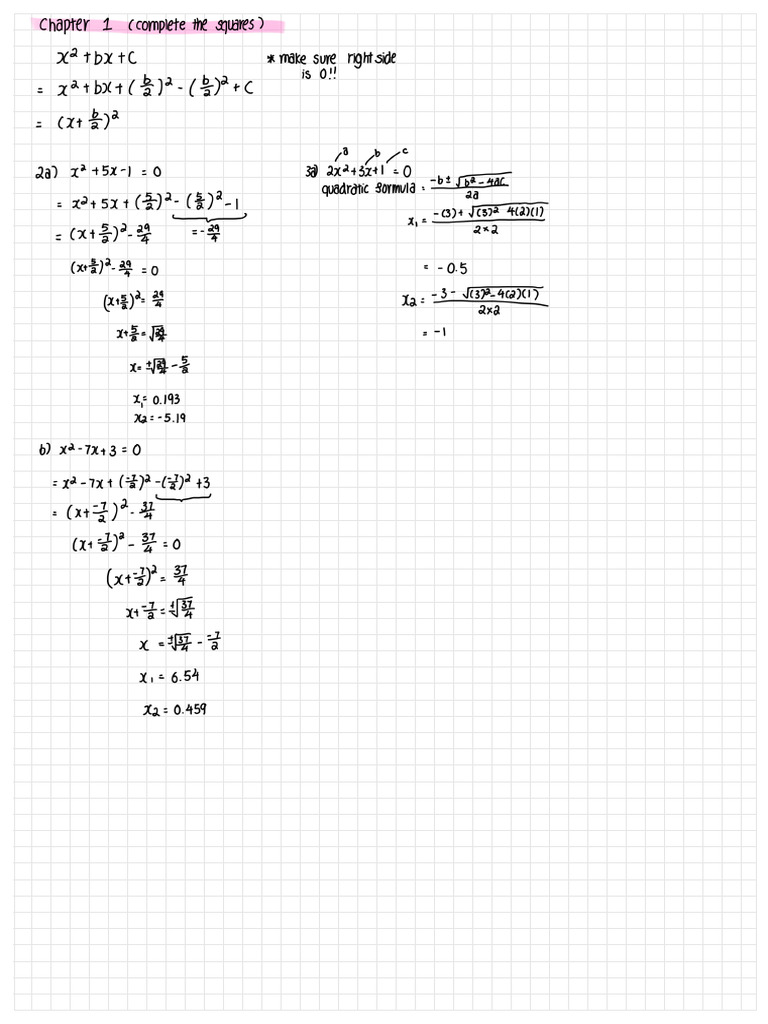 Chapter 1 (complete the squares)
x² + bx + c
= x² + bx + (b/2)² - (b/2)² + c
= (x + b/2)²
* make sure right side
is 0!!
2a) x² + 5x - 1 = 0
= x² + 5x + (5/2)² - (5/2)² - 1
= (x + 5/2)² - 29/4
= - 29/4
(x + 5/2)² - 29/4 = 0
(x + 5/2)² = 29/4
x + 5/2 = √29/4
x = ±√29/4 - 5/2
x₁ = 0.193
x₂ = -5.19
b) x² - 7x + 3 = 0
= x² - 7x + (-7/2)² - (-7/2)² + 3
= (x + -7/2)² - 37/4
(x + -7/2)² - 37/4 = 0
(x + -7/2)² = 37/4
x + -7/2 = ±√37/4
x = ±√37/4 - -7/2
x₁ = 6.54
x₂ = 0.459
a b c
3a) 2x² + 3x + 1 = 0
quadratic formula = -b ± √b² - 4ac / 2a
x₁ = -(3) + √(3)² 4(2)(1) / 2×2
= -0.5
x₂ = -3 - √(3)² - 4(2)(1) / 2×2
= -1